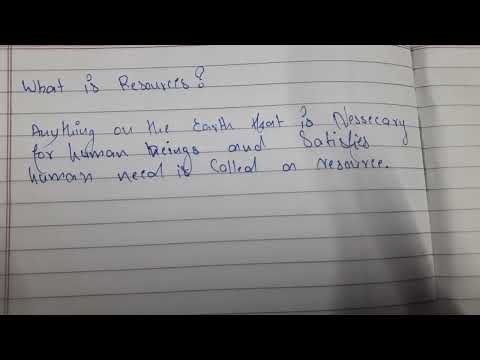 What is Resources?
Anything on the Earth that is Nessecary
for human beings and Satisfies
human need is Called a resource.